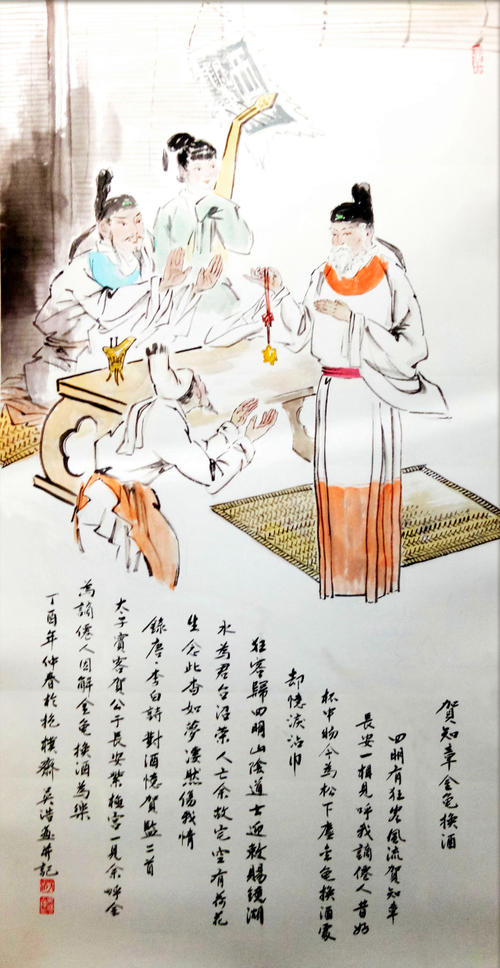 賀知章金龜換酒
四明有狂客風流賀知章
長安一相見呼我謫僊人昔好
杯中物今為松下塵金龜換酒處
却憶淚沾巾
狂客歸四明山陰道士迎敕賜鏡湖
水為君台沼榮人亡余故宅空有荷花
生念此杳如夢淒然傷我情
錄唐·李白詩對酒憶賀監二首
太子賓客賀公于長安紫極宮一見余呼余
為謫僊人因解金龜換酒為樂
丁酉年仲春於抱樸齋吳浩畫并記